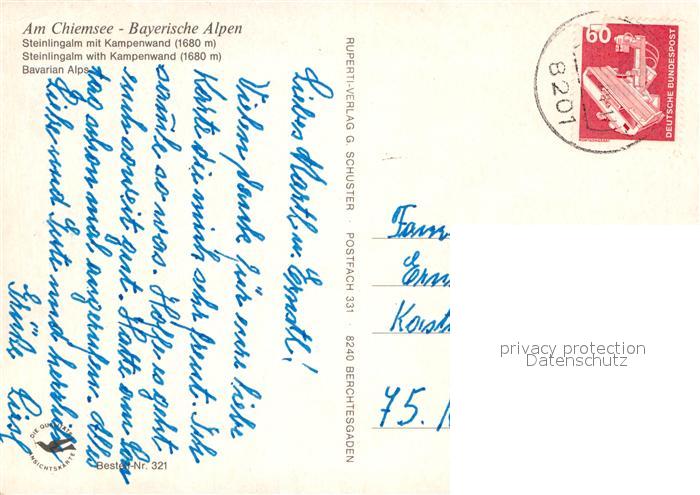 Am Chiemsee - Bayerische Alpen
Steinlingalm mit Kampenwand (1680 m)
Steinlingalm with Kampenwand (1680 m)
Bavarian Alps
Liebes Martl u. Ernstl!
Vielen Dank für eure liebe
Karte die mich sehr freut. Ich
samle so was. Hoffe es geht
euch soweit gut. Hatte am
tag schon mal angerufen. Alles
Liebe und Gute und herzlich
Grüße Liesl
DIE QUALITÄTS
ANSICHTSKARTE
Bestell-Nr. 321
RUPERTI-VERLAG G. SCHUSTER · POSTFACH 331 · 8240 BERCHTESGADEN
8201
60
DEUTSCHE BUNDESPOST
RÖNTGENGERÄT
Fam
Ern
Kast
75.
privacy protection
Datenschutz